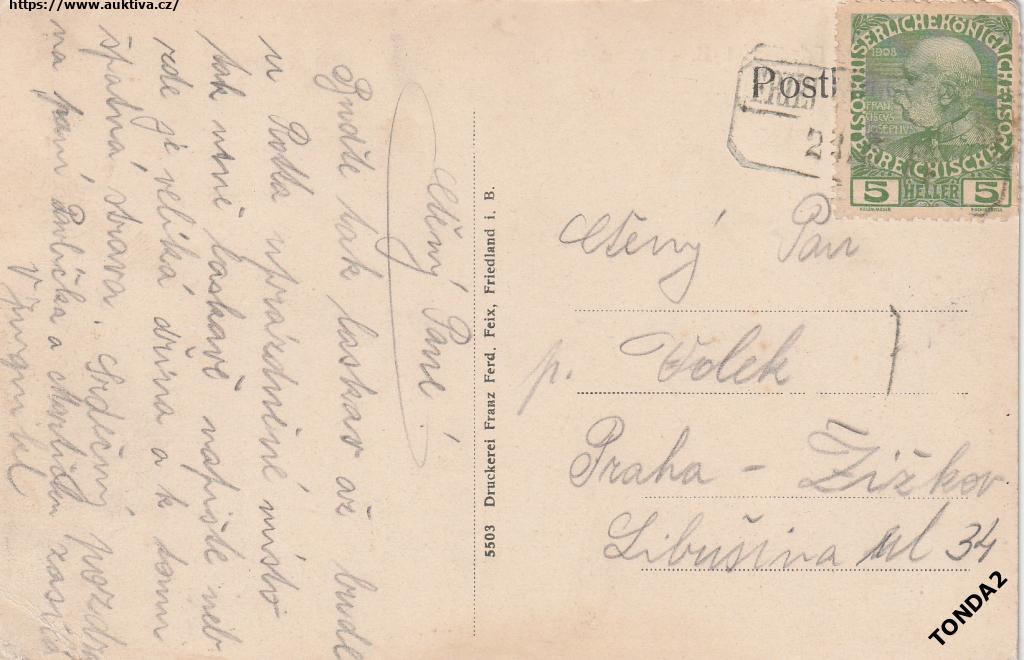 https://www.auktiva.cz/
Ctěný Pane!
Buďte tak laskav až bude
u Potta uprázdněné místo
tak mně laskavě napište neb
zde je velká dřina a k tomu
špatná strava. Srdečný pozdr
na paní Pavlička a
V
5503 Druckerei Franz Ferd. Feix, Friedland i. B.
Post
KAISERLICHE KÖNIGLICHE ÖSTERREICHISCHE POST
1908
FRAN
CISCUS
JOSEPHUS
5 HELLER 5
Ctěný Pan
p. Volek
Praha - Žižkov
Libušina ul 34
TONDA2